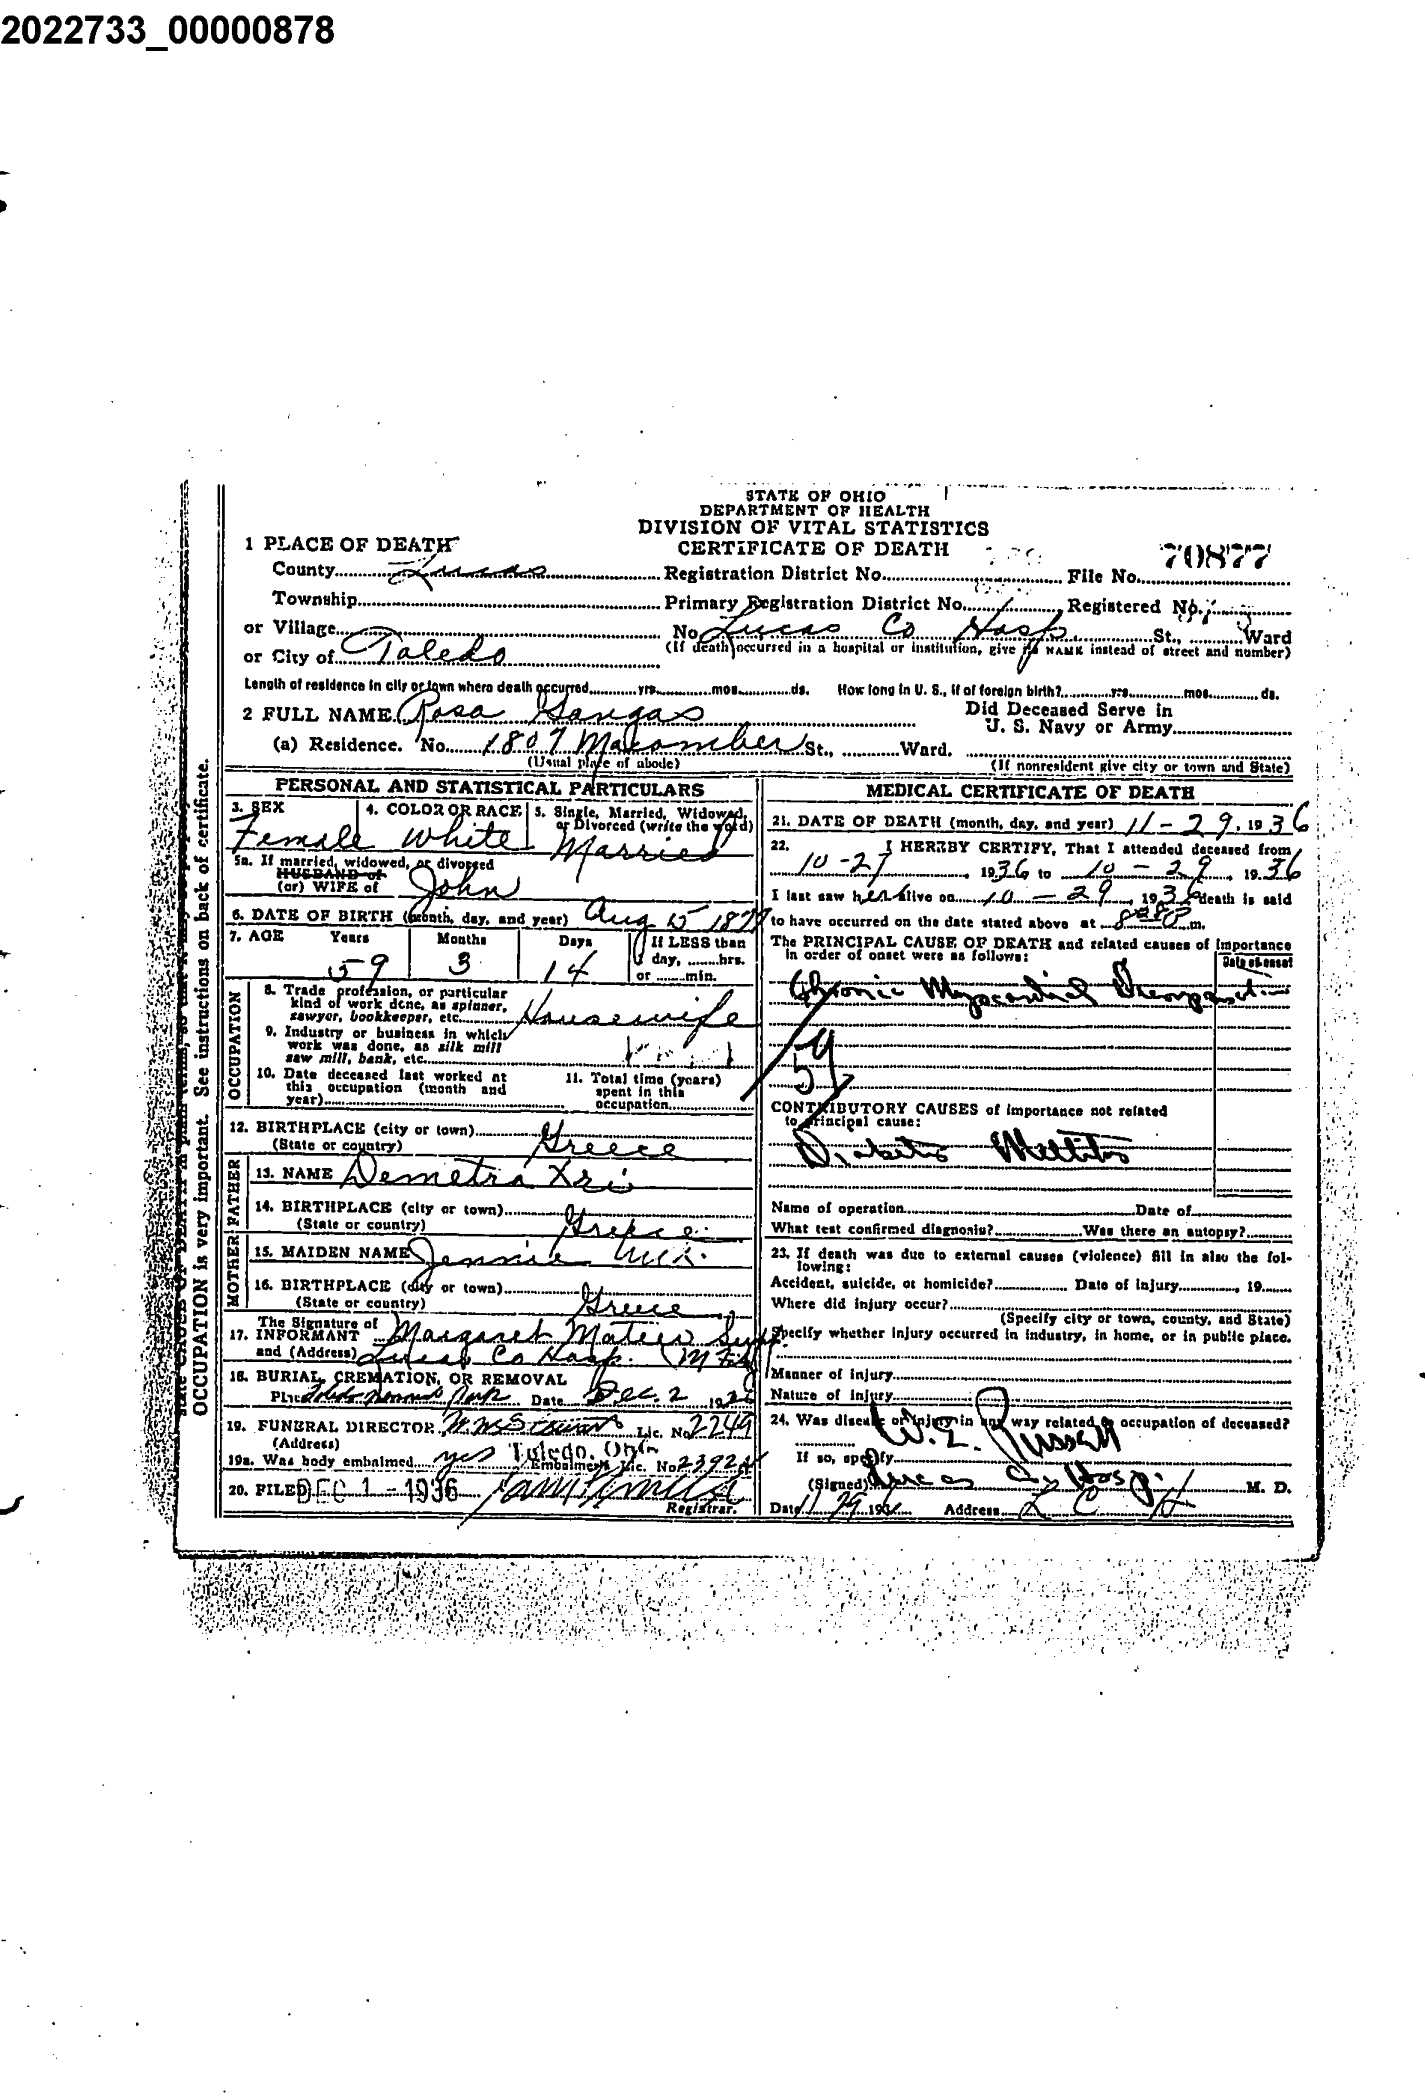 2022733_00000878
STATE OF OHIO
DEPARTMENT OF HEALTH
DIVISION OF VITAL STATISTICS
CERTIFICATE OF DEATH
70877
1 PLACE OF DEATH
County Lucas Registration District No. File No.
Township Primary Registration District No. Registered No.
or Village No. Lucas Co Hosp. St., Ward
or City of Toledo (If death occurred in a hospital or institution, give its NAME instead of street and number)
Length of residence in city or town where death occurred yrs. mos. ds. How long in U. S., if of foreign birth? yrs. mos. ds.
2 FULL NAME Rosa Gangas Did Deceased Serve in
U. S. Navy or Army
(a) Residence. No. 1807 Macomber St., Ward.
(Usual place of abode) (If nonresident give city or town and State)
OCCUPATION is very important. See instructions on back of certificate.
PERSONAL AND STATISTICAL PARTICULARS
3. SEX 4. COLOR OR RACE 5. Single, Married, Widowed,
or Divorced (write the word)
Female White Married
5a. If married, widowed, or divorced
HUSBAND of
(or) WIFE of John
6. DATE OF BIRTH (month, day, and year) Aug 15 1877
7. AGE Years Months Days If LESS than
day, hrs.
or min.
59 3 14
OCCUPATION
8. Trade profession, or particular
kind of work done, as spinner,
sawyer, bookkeeper, etc. Housewife
9. Industry or business in which
work was done, as silk mill
saw mill, bank, etc.
10. Date deceased last worked at
this occupation (month and
year)
11. Total time (years)
spent in this
occupation
12. BIRTHPLACE (city or town)
(State or country) Greece
FATHER
13. NAME Demetra Xri
14. BIRTHPLACE (city or town)
(State or country) Greece
MOTHER
15. MAIDEN NAME Jennie Unk.
16. BIRTHPLACE (city or town)
(State or country) Greece
The Signature of
17. INFORMANT Margaret Supt
and (Address) Lucas Co Hosp.
18. BURIAL, CREMATION, OR REMOVAL
Place Toledo Memorial Park Date Dec. 2 1936
19. FUNERAL DIRECTOR Lic. No. 2249
(Address) Toledo, Ohio
19a. Was body embalmed yes Embalmers Lic. No. 2392A
20. FILED DEC 1 - 1936
Registrar.
MEDICAL CERTIFICATE OF DEATH
21. DATE OF DEATH (month, day, and year) 11-29, 1936
22. I HEREBY CERTIFY, That I attended deceased from
10-27, 1936 to 10-29, 1936
I last saw her alive on 10-29, 1936 death is said
to have occurred on the date stated above at m.
The PRINCIPAL CAUSE OF DEATH and related causes of importance
in order of onset were as follows:
Date of onset
Chronic Myocardial
59
CONTRIBUTORY CAUSES of importance not related
to principal cause:
Diabetis Mellitus
Name of operation Date of
What test confirmed diagnosis? Was there an autopsy?
23. If death was due to external causes (violence) fill in also the fol-
lowing:
Accident, suicide, or homicide? Date of injury, 19
Where did injury occur?
(Specify city or town, county, and State)
Specify whether injury occurred in industry, in home, or in public place.
Manner of injury
Nature of injury
24. Was disease or injury in any way related to occupation of deceased?
If so, specify
W. E. Russell
(Signed) Lucas Co Hosp. M. D.
Date 11/29 193 Address L C H